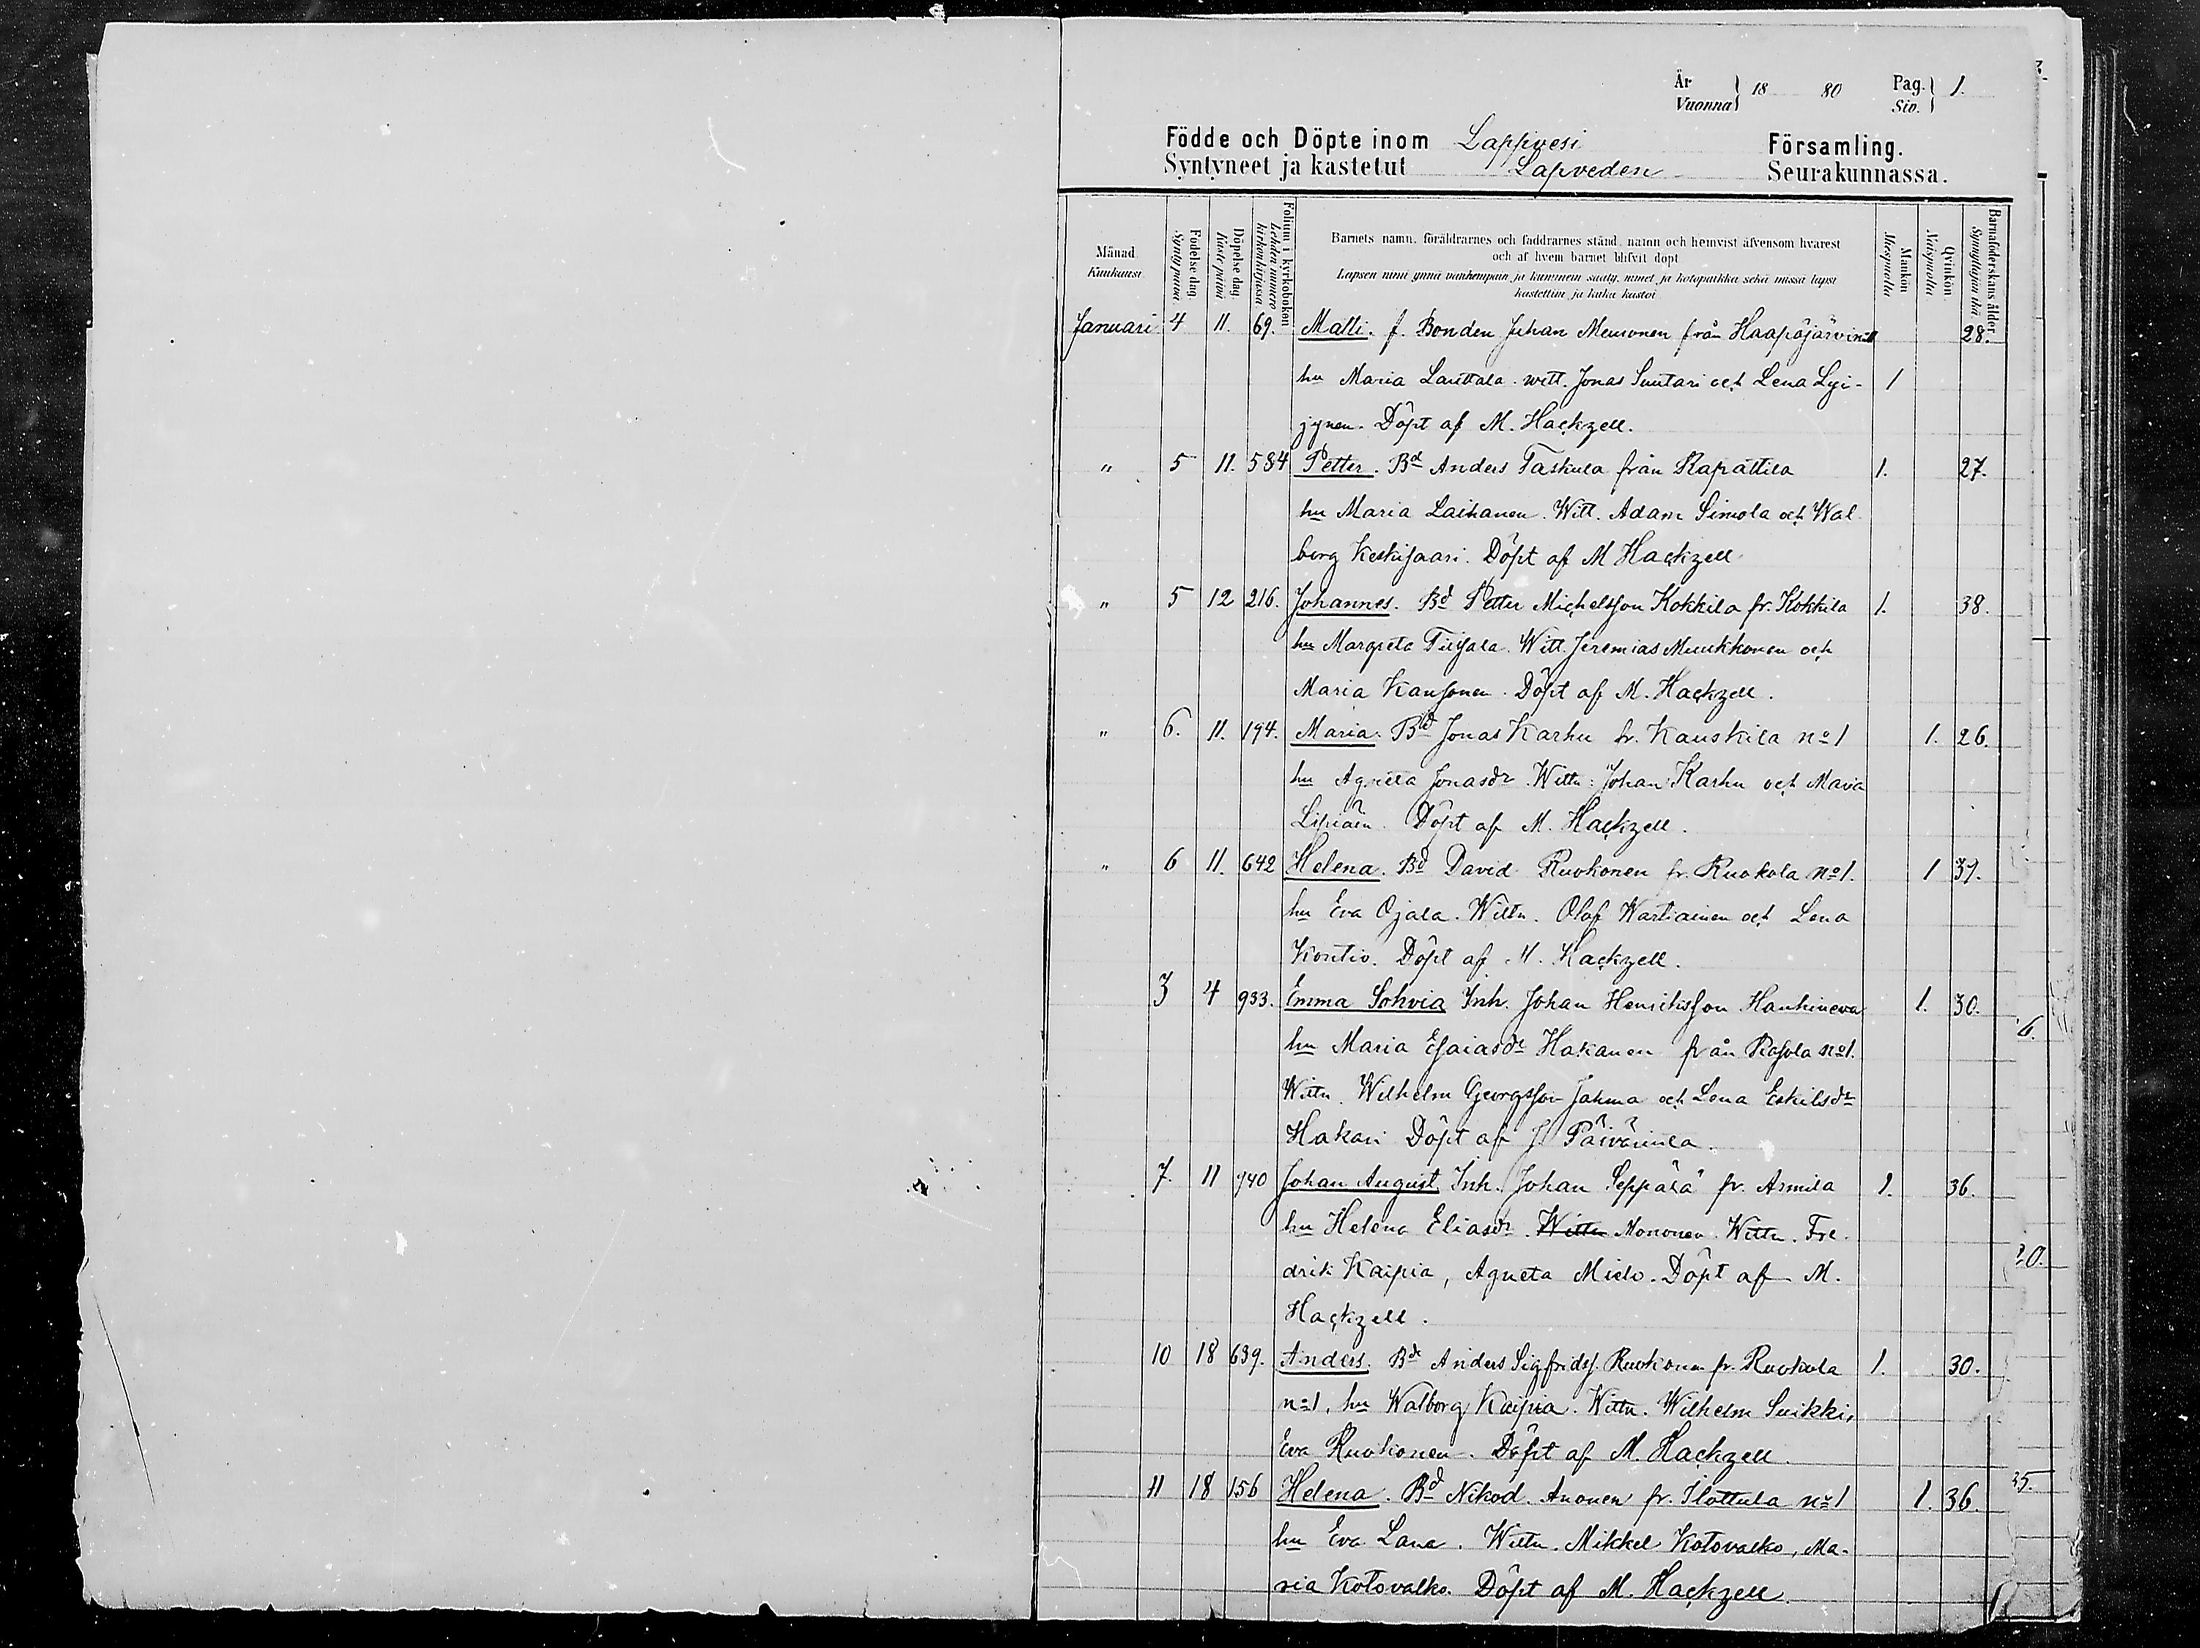 År
Vuonna } 18 80 Pag.
Siv. } 1.
Födde och Döpte inom Lappvesi Församling.
Syntyneet ja kastetut Lapveden Seurakunnassa.
Månad
Kuukausi
Födelse dag.
Syntymä päivä
Döpelse dag.
Kaste päivä
Folium i kyrkoboken
Lehden numero kirkonkirjassa
Barnets namn, föräldrarnes och faddrarnes stånd, namn och hemvist äfvensom hvarest
och af hvem barnet blifvit döpt
Lapsen nimi ynnä vanhempain ja kummein sääty, nimet ja kotopaikka sekä missä lapsi
kastettiin ja kuka kastoi
Mankön
Miespuolia
Qvinkön
Naispuolia
Barnaföderskans ålder
Synnyttäjän ikä
Januari 4 11. 69. Matti. f. Bonden Juhan Meuronen från Haapajärvi n:o1 28.
hu Maria Lauttala. witt. Jonas Suutari och Lena Lyi- 1
jynen. Döpt af M. Hackzell.
" 5 11. 584 Petter. Bd Anders Taskula från Rapattila 1. 27.
hu Maria Laihanen. Witt. Adam Simola och Wal
borg Keskisaari. Döpt af M Hackzell
" 5 12 216. Johannes. Bd Petter Michelsson Kokkila fr. Kokkila 1. 38.
hu Margreta Tujala. Witt. Jeremias Muukkonen och
Maria Kansonen. Döpt af M. Hackzell.
" 6. 11. 194. Maria. Bd Jonas Karhu fr. Kauskila no1 1. 26.
hu Agneta Jonasdr. Wittn: Johan Karhu och Maria
Lipiäin. Döpt af M. Hackzell.
" 6 11. 642 Helena. Bd David Ruokonen fr. Ruokola No1. 1 37.
hu Eva Ojala. Wittn. Olof Wartiainen och Lena
Kontio. Döpt af M. Hackzell.
3 4 933. Emma Sohvia Inh. Johan Henriksson Hankineva 1. 30.
hu Maria Esaiasdr Hakanen från Rasola no1.
Wittn. Wilhelm Georgsson Jahma och Lena Eskilsdr
Hakari Döpt af J Päivärinta.
7. 11 940 Johan August Inh. Johan Seppälä fr. Armila 1. 36.
hu Helena Eliasdr. Wittn Mononen. Wittn. Fre-
drik Kaipia, Agneta Mielo. Döpt af M.
Hackzell.
10 18 639. Anders. Bd Anders Sigfridss. Ruokonen fr. Ruokola 1. 30.
no1, hu Walborg Kaipia. Wittn. Wilhelm Suikki,
Eva Ruokonen. Döpt af M. Hackzell.
11 18 156 Helena. Bd Nikod. Anonen fr. Ilottula no1 1. 36.
hu Eva Lana. Wittn. Mikkel Kotovalko, Ma-
ria Kotovalko. Döpt af M. Hackzell.